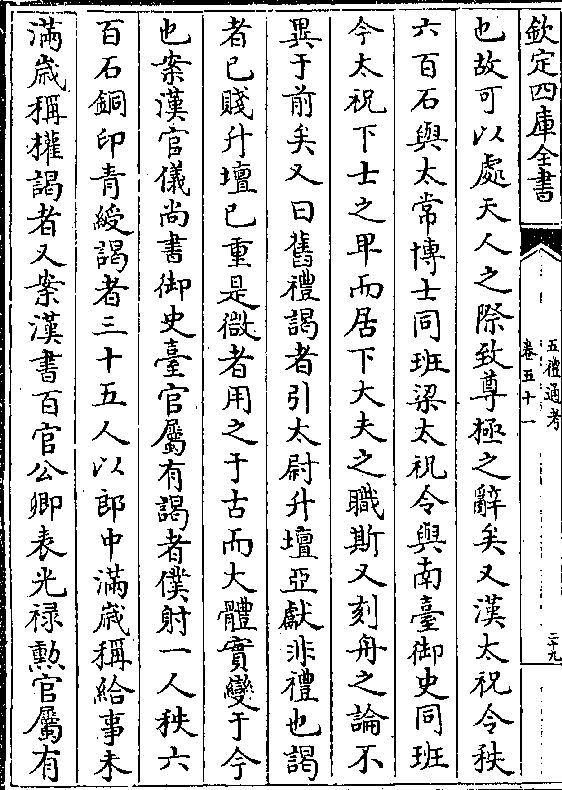 欽定四庫全書
五禮通考
卷五十一
二十九
也故可以處天人之際致尊極之辭矣又漢太祝令秩
六百石與太常博士同班梁太祝令與南臺御史同班
今太祝下士之卑而居下大夫之職斯又刻舟之論不
異于前矣又曰舊禮謁者引太尉升壇亞獻非禮也謁
者已賤升壇已重是微者用之于古而大體實變于今
也案漢官儀尚書御史臺官屬有謁者僕射一人秩六
百石銅印青綬謁者三十五人以郎中滿歲稱給事未
滿歲稱權謁者又案漢書百官公卿表光禄勲官屬有